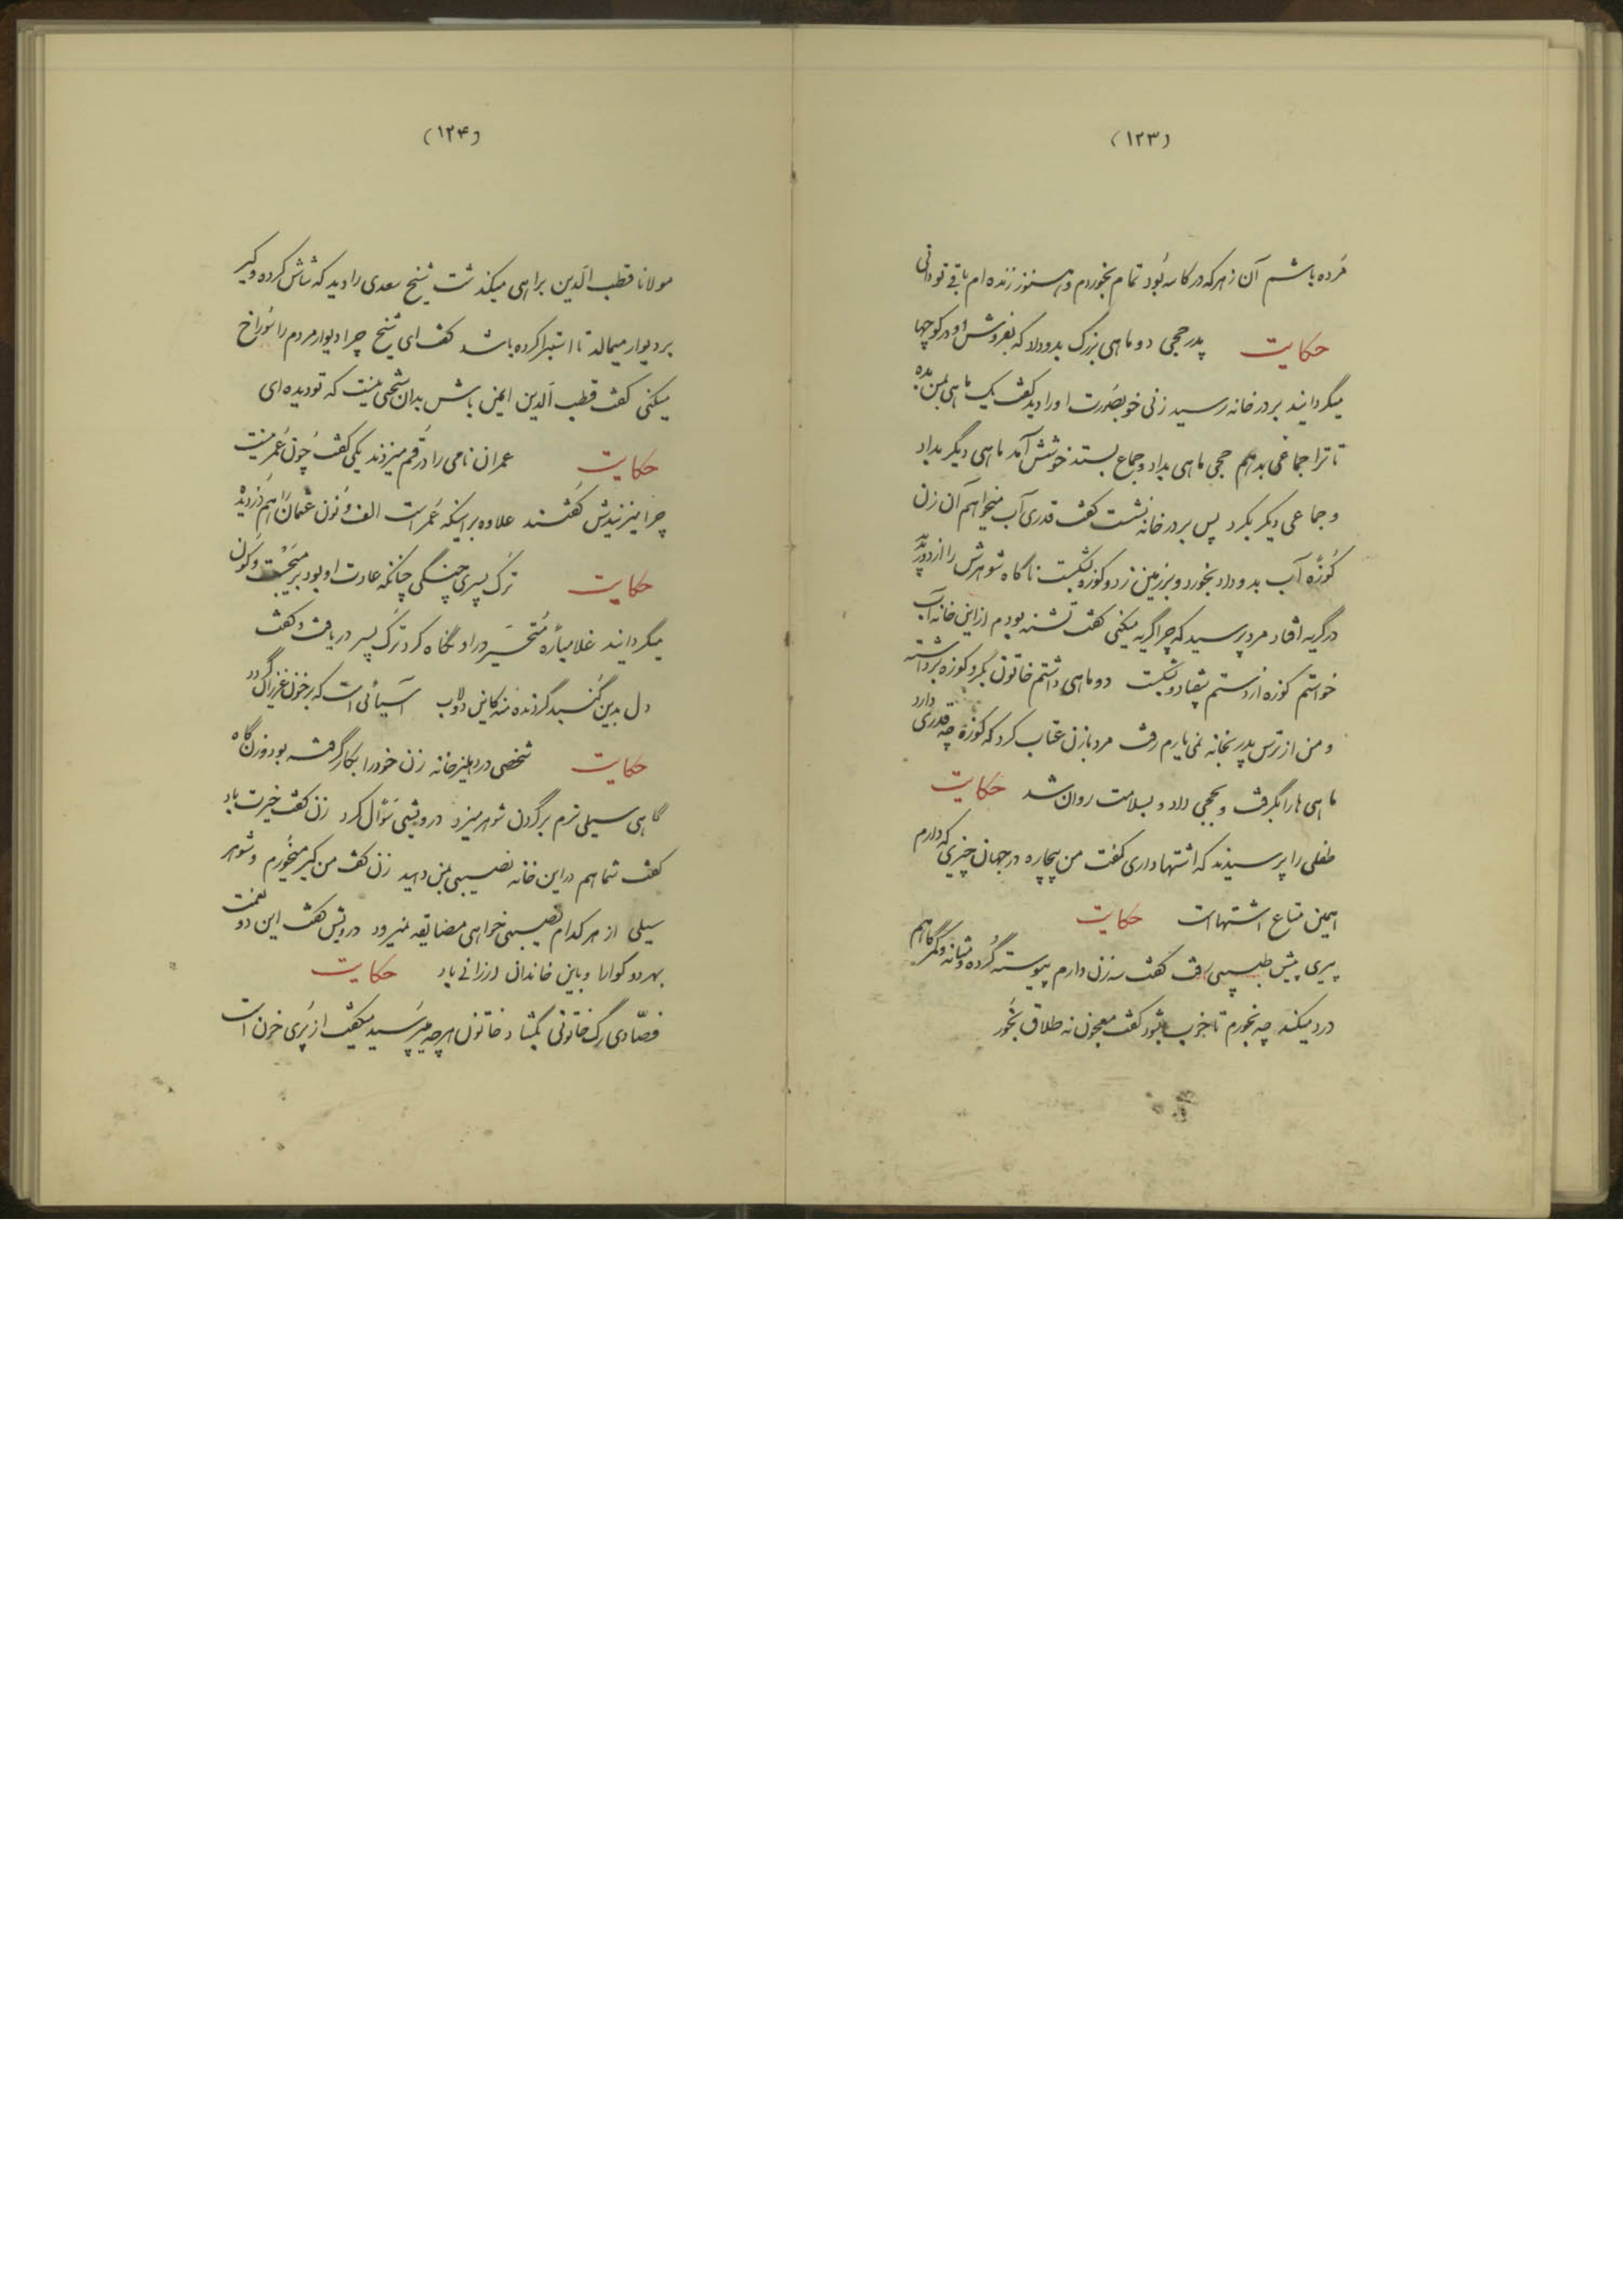 (۱۲۳)
مرده باشم آن زهر که در کاسه بود تمام بخوردم و هنوز زنده ام باقی تو دانی
حکایت پدر حجی دو ماهی بزرگ بدو داد که بفروش او در کوچها
میگردانید بر در خانه رسید زنی خوبصورت او را دید گفت یک ماهی بمن بده
تا ترا جماعی بدهم حجی ماهی بداد و جماع بستد خوشش آمد ماهی دیگر بداد
و جماعی دیگر بکرد پس بر در خانه نشست گفت قدری آب میخواهم آن زن
کوزه آب بدو داد بخورد و بر زمین زد و کوزه بشکست ناگاه شوهرش را از دور بدید
در گریه افتاد مرد پرسید که چرا گریه میکنی گفت تشنه بودم از این خانه آب
خواستم کوزه از دستم بیفتاد و بشکست دو ماهی داشتم خاتون بگرو کوزه برداشته
و من از ترس پدر بخانه نمی یارم رفت مرد با زن عتاب کرد که کوزه چه قدری دارد
ماهی ها را بگرفت و بحجی داد و بسلامت روان شد حکایت
طفلی را پرسیدند که اشتها داری گفت من بیچاره در جهان چیزی که دارم
همین متاع اشتهاست حکایت
پیری پیش طبیبی رفت گفت سه زن دارم پیوسته گرده و مثانه و کمرگاهم
درد میکند چه بخورم تا خوب بشود گفت معجون نه طلاق بخور
(۱۲۴)
مولانا قطب الدین براهی میگذشت شیخ سعدی را دید که شاش کرده و کیر
بر دیوار میمالد تا استبرا کرده باشد گفت ای شیخ چرا دیوار مردم را سوراخ
میکنی گفت قطب الدین ایمن باش بدان سختی نیست که تو دیده ای
حکایت عمران نامی را در قم میزدند یکی گفت چون عمر نیست
چرا میزنیدش گفتند علاوه بر اینکه عمر است الف و نون عثمان را هم دزدیده
حکایت ترک پسری چنگی چنانکه عادت او بود بر میجست و کون
میگردانید غلامباره متحسر در او نگاه کرد ترک پسر دریافت و گفت
دل بدین گنبد گردنده منه کاین دولاب آسیائی است که بر خون عزیزان گردد
حکایت شخصی در دهلیز خانه زن خود را بکار گرفته بود و زن گاه
گاهی سیلی نرم بر گردن شوهر میزد درویشی سؤال کرد زن گفت خیرت باد
گفت شما هم در این خانه نصیبی بمن دهید زن گفت من کیر میخورم و شوهر
سیلی از هر کدام نصیبی خواهی مضایقه نمیرود درویش گفت این دو نعمت
بهر دو گوارا و باین خاندان ارزانی باد حکایت
فصادی رگ خاتونی بگشاد خاتون هر چه میپرسید میگفت از پری خون است